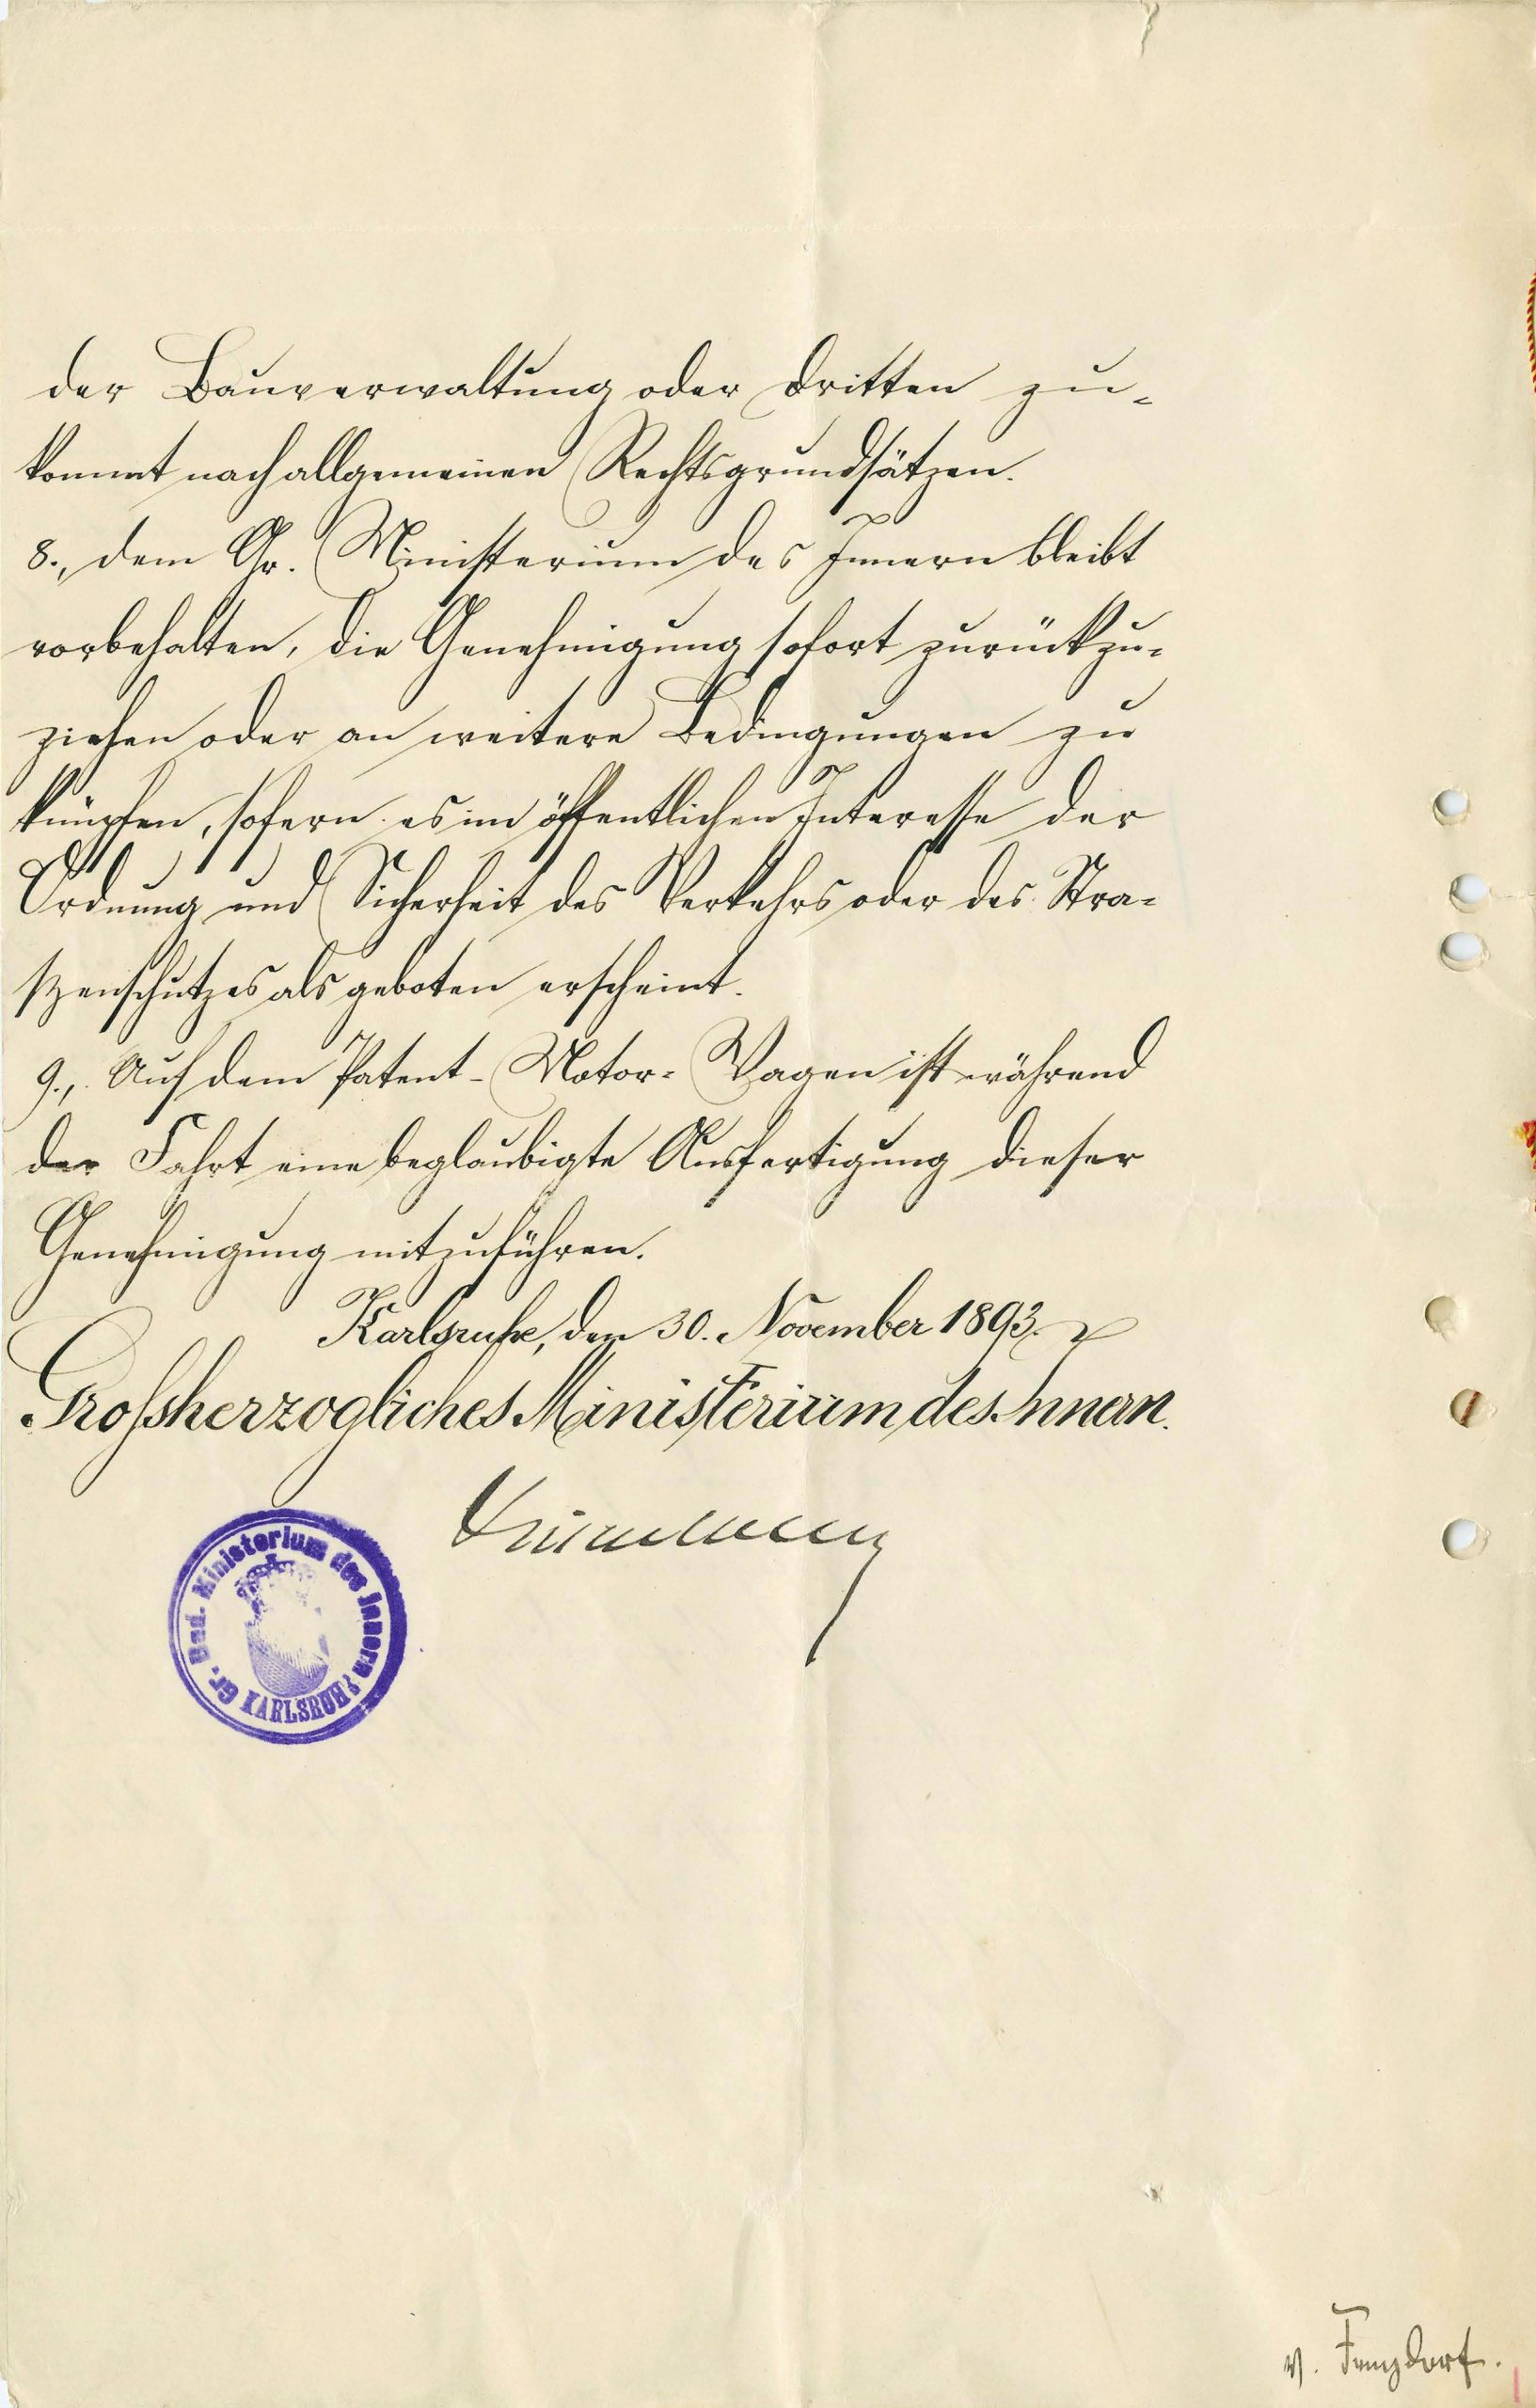 der Bauverwaltung oder Dritten zu-
kommt nach allgemeinen Rechtsgrundsätzen.
8., dem Gr. Ministerium des Innern bleibt
vorbehalten, die Genehmigung sofort zurückzu-
ziehen oder an weitere Bedingungen zu
knüpfen, sofern es im öffentlichen Interesse der
Ordnung und Sicherheit des Verkehrs oder des Stra-
ßenschutzes als geboten erscheint.
9., Auf dem Patent-Motor-Wagen ist während
der Fahrt eine beglaubigte Ausfertigung dieser
Genehmigung mitzuführen.
Karlsruhe, den 30. November 1893.
Grossherzogliches Ministerium des Innern.
Gr. Bad. Ministerium des Innern
KARLSRUHE